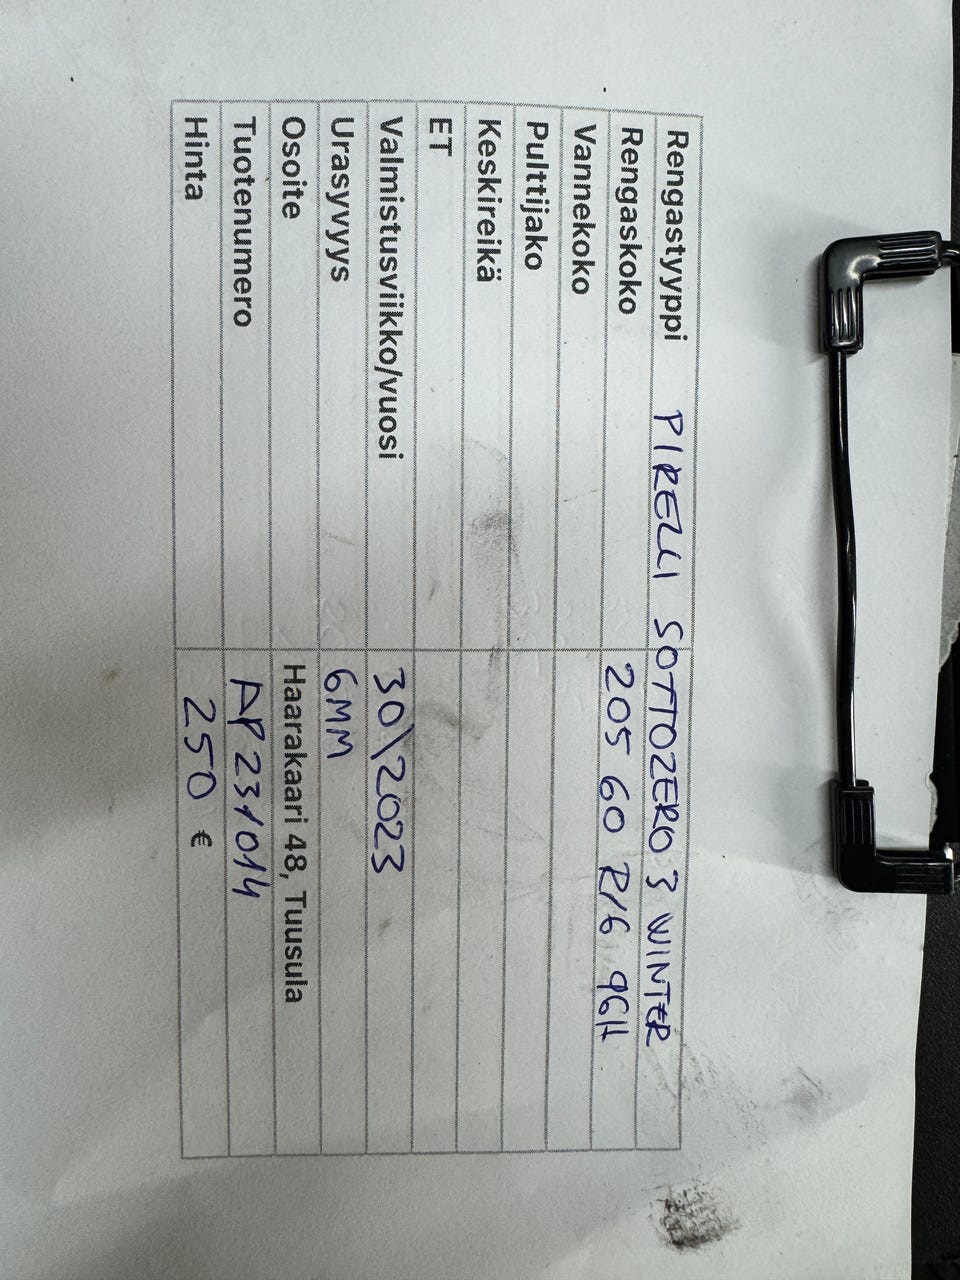 Rengastyyppi PIRELLI SOTTOZERO 3 WINTER
Rengaskoko 205 60 R16 96H
Vannekoko
Pulttijako
Keskireikä
ET
Valmistusviikko/vuosi 30\2023
Urasyvyys 6MM
Osoite Haarakaari 48, Tuusula
Tuotenumero AP231014
Hinta 250 €